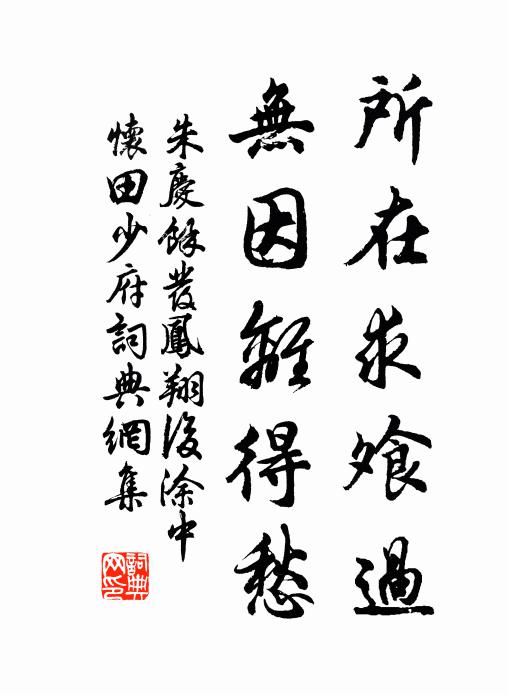 所在求飧過
無因離得愁
朱慶餘發鳳翔後涂中
懷田少府詞典網集
詞典网印